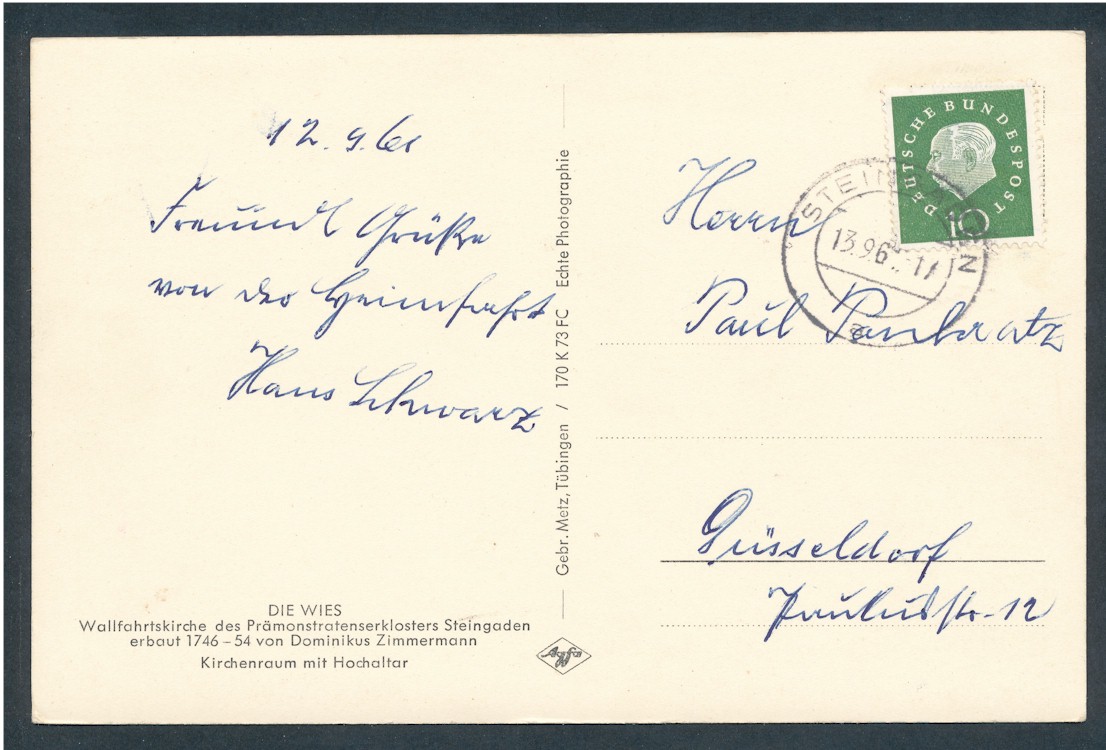 12.9.61
Freundl Grüße
von der Heimfahrt
Hans Schwarz
DIE WIES
Wallfahrtskirche des Prämonstratenserklosters Steingaden
erbaut 1746–54 von Dominikus Zimmermann
Kirchenraum mit Hochaltar
Gebr. Metz, Tübingen / 170 K 73 FC Echte Photographie
Agfa
DEUTSCHE BUNDESPOST
10
STEINGADEN
13.9.61
a
Herrn
Paul Pankratz
Düsseldorf
Paulusstr. 12